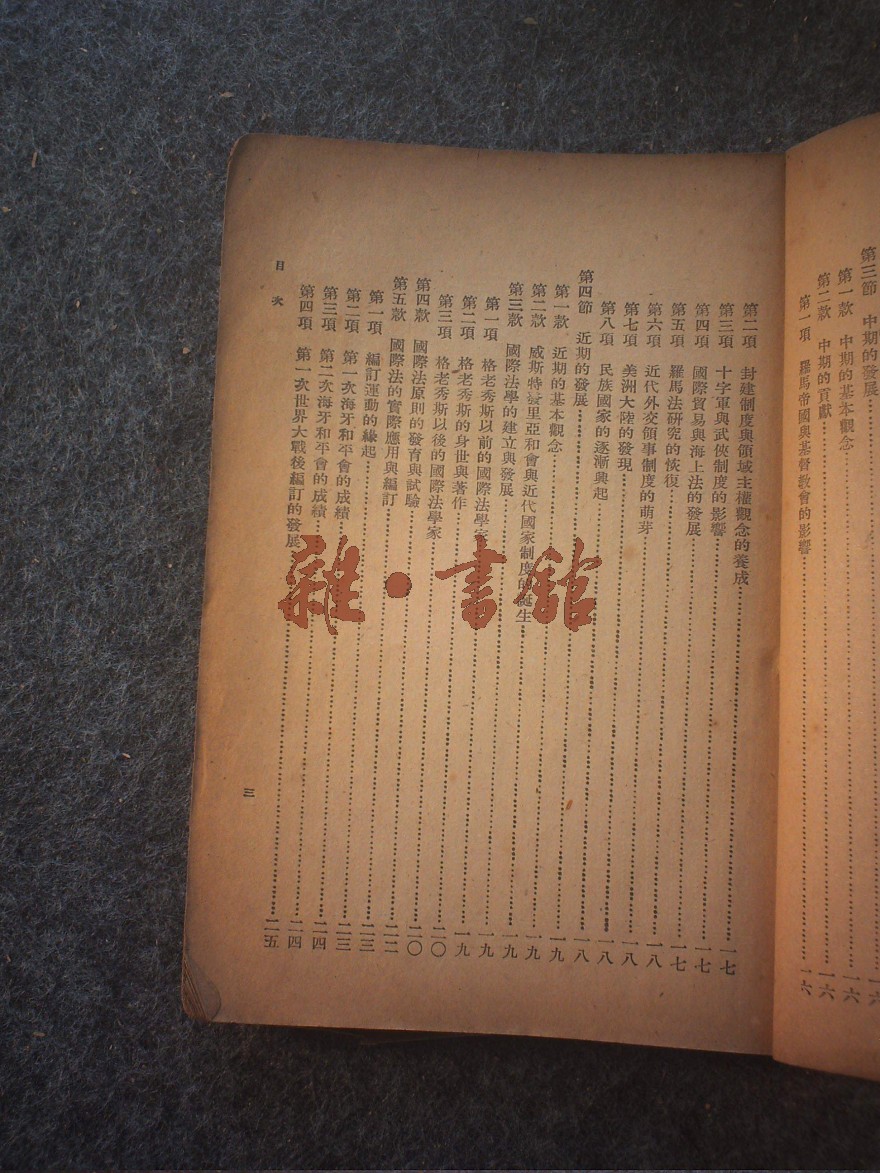 第三節 中期的發展……一六
第一款 中期的基本觀念……一六
第二款 中期的貢獻……一六
第一項 羅馬帝國與基督敎會的影響……一六
第二項 封建制度與領域主權觀念的養成……一七
第三項 十字軍與武俠制度的影響……一七
第四項 國際貿易與海上法的發展……一七
第五項 羅馬法研究的恢復……一八
第六項 近代外交領事制度的萌芽……一八
第七項 美洲大陸的發現……一八
第八項 民族國家的逐漸興起……一八
第四節 近期的發展……一九
第一款 近期的基本觀念……一九
第二款 威斯特發里亞和會與近代國家制度的誕生……一九
第三款 國際法學的建立與發展……一九
第一項 格老秀斯以前的國際法學家……一九
第二項 格老秀斯的身世與著作……二〇
第三項 格老秀斯以後的國際法學家……二〇
第四款 國際法原則的發育與試驗……二二
第五款 國際法的實際應用與編訂……二三
第一項 編訂運動的緣起……二三
第二項 第一次海牙和平會的成績……二四
第三項 第二次海牙和平會的成績……二四
第四項 第一次世界大戰後編訂的發展……二五
目次
三
雜·書館